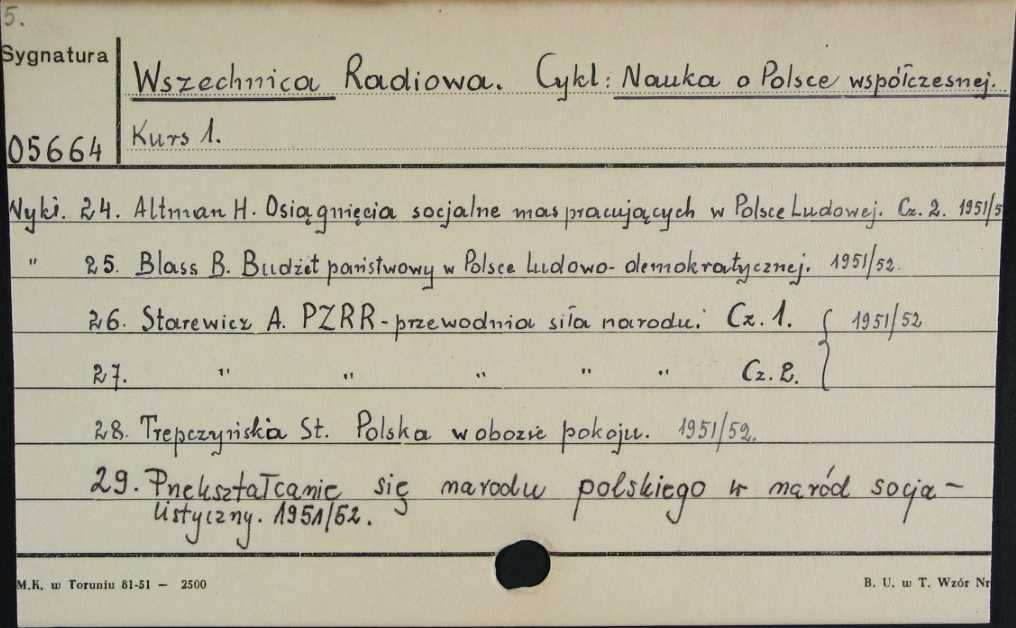 5.
Sygnatura
Wszechnica Radiowa. Cykl: Nauka o Polsce współczesnej.
05664 Kurs 1.
Wykł. 24. Altman H. Osiągnięcia socjalne mas pracujących w Polsce Ludowej. Cz. 2. 1951/5
" 25. Blass B. Budżet państwowy w Polsce Ludowo-demokratycznej. 1951/52.
26. Starewicz A. PZRR - przewodnia siła narodu. Cz. 1. 1951/52
27. " " " " " Cz. 2.
28. Trepczyński St. Polska w obozie pokoju. 1951/52.
29. Przekształcanie się narodu polskiego w naród socja-
listyczny. 1951/52.
M.K. w Toruniu 81-51 — 2500 B. U. w T. Wzór Nr